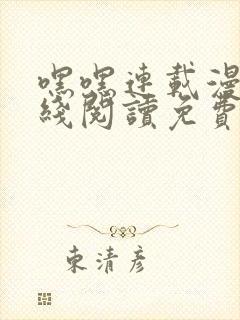 嘿嘿連載漫
綫閱讀免費
東清彥